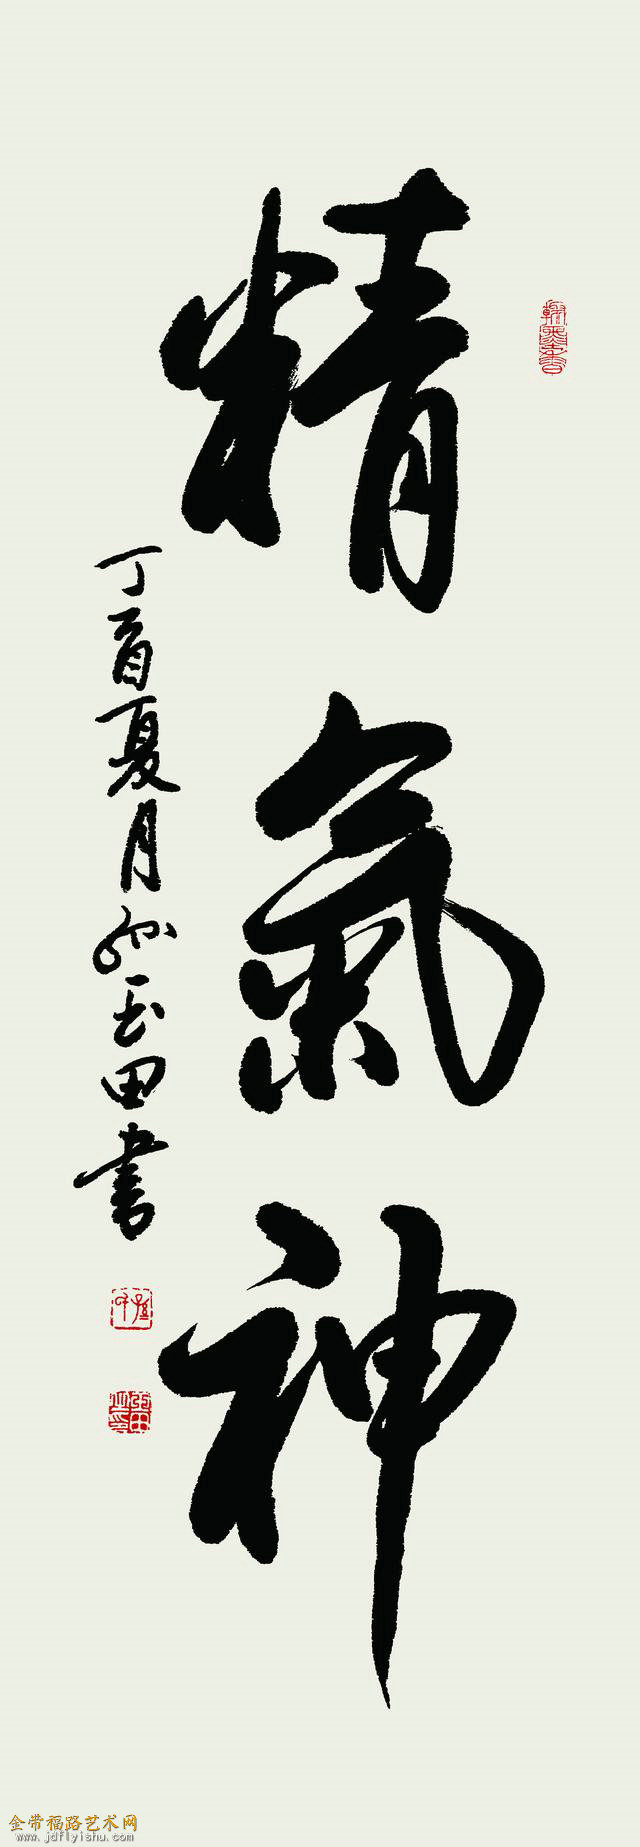 精氣神
丁酉夏月孙玉田书
金带福路艺术网
www.jdflyishu.com